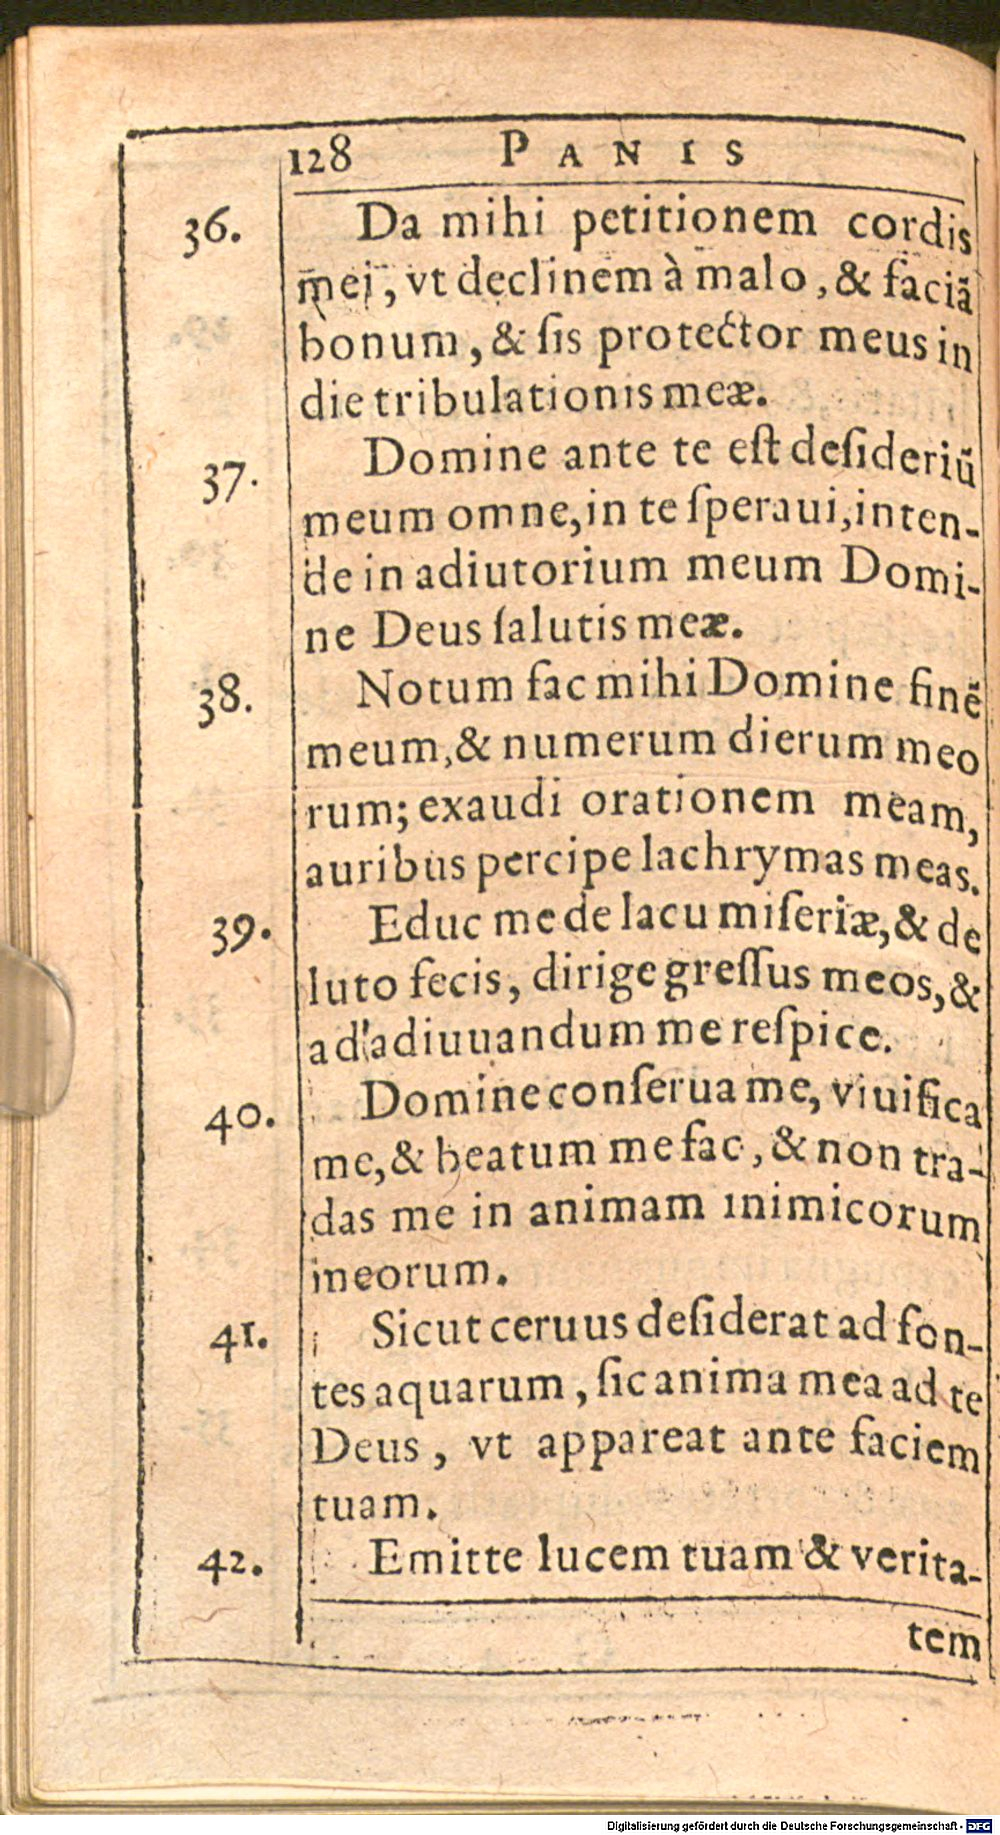 128 PANIS
36. Da mihi petitionem cordis
mei, vt declinem à malo, & faciã
bonum, & ſis protector meus in
die tribulationis meæ.
37. Domine ante te eſt deſideriũ
meum omne, in te ſperaui, inten-
de in adiutorium meum Domi-
ne Deus ſalutis meæ.
38. Notum fac mihi Domine finẽ
meum, & numerum dierum meo
rum; exaudi orationem meam,
auribus percipe lachrymas meas.
39. Educ me de lacu miſeriæ, & de
luto fecis, dirige greſſus meos, &
ad adiuuandum me reſpice.
40. Domine conſerua me, viuifica
me, & beatum me fac, & non tra-
das me in animam inimicorum
meorum.
41. Sicut ceruus deſiderat ad fon-
tes aquarum, ſic anima mea ad te
Deus, vt appareat ante faciem
tuam.
42. Emitte lucem tuam & verita-
tem
Digitalisierung gefördert durch die Deutsche Forschungsgemeinschaft - DFG